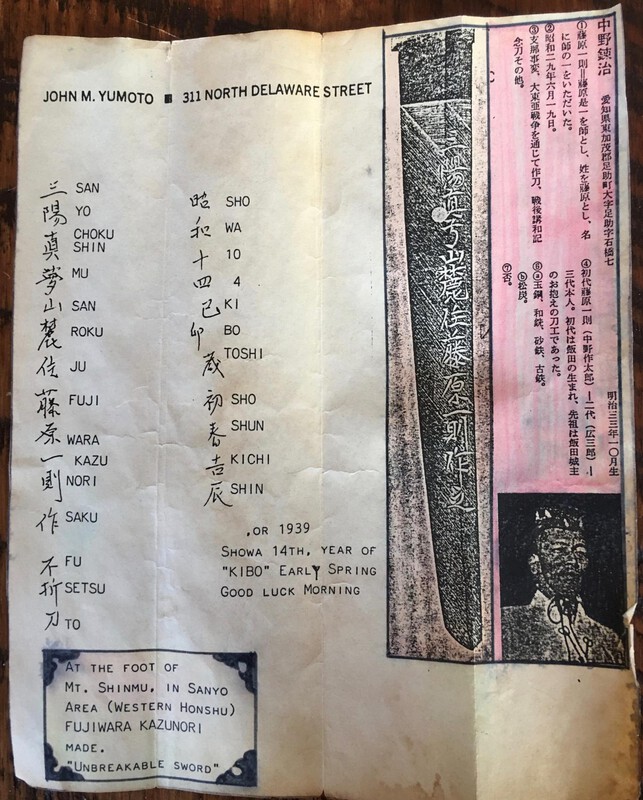 JOHN M. YUMOTO ■ 311 NORTH DELAWARE STREET
三 SAN
陽 YO
真 CHOKU SHIN
夢 MU
山 SAN
麓 ROKU
住 JU
藤 FUJI
原 WARA
一 KAZU
則 NORI
作 SAKU
不 FU
折 SETSU
刀 TO
昭 SHO
和 WA
十 10
四 4
己 KI
卯 BO
歳 TOSHI
初 SHO
春 SHUN
吉 KICHI
辰 SHIN
,OR 1939
SHOWA 14TH, YEAR OF
"KIBO" EARLY SPRING
GOOD LUCK MORNING
AT THE FOOT OF
MT. SHINMU, IN SANYO
AREA (WESTERN HONSHU)
FUJIWARA KAZUNORI
MADE.
"UNBREAKABLE SWORD"
中野鍊治 愛知県東加茂郡足助町大字足助字石橋七
明治三三年一〇月生
①藤原一則=藤原是一を師とし、姓を藤原とし、名
に師の一をいただいた。
②昭和二九年六月一九日。
③支那事変、大東亜戦争を通じて作刀、戦後講和記
念刀その他。
④初代藤原一則(中野作太郎)—二代(広三郎)—
三代本人。初代は飯田の生まれ、先祖は飯田城主
のお抱えの刀工であった。
⑥ⓐ玉鋼、和鉄、砂鉄、古鉄。
ⓑ松炭。
⑦否。
山麓住藤原一則作之